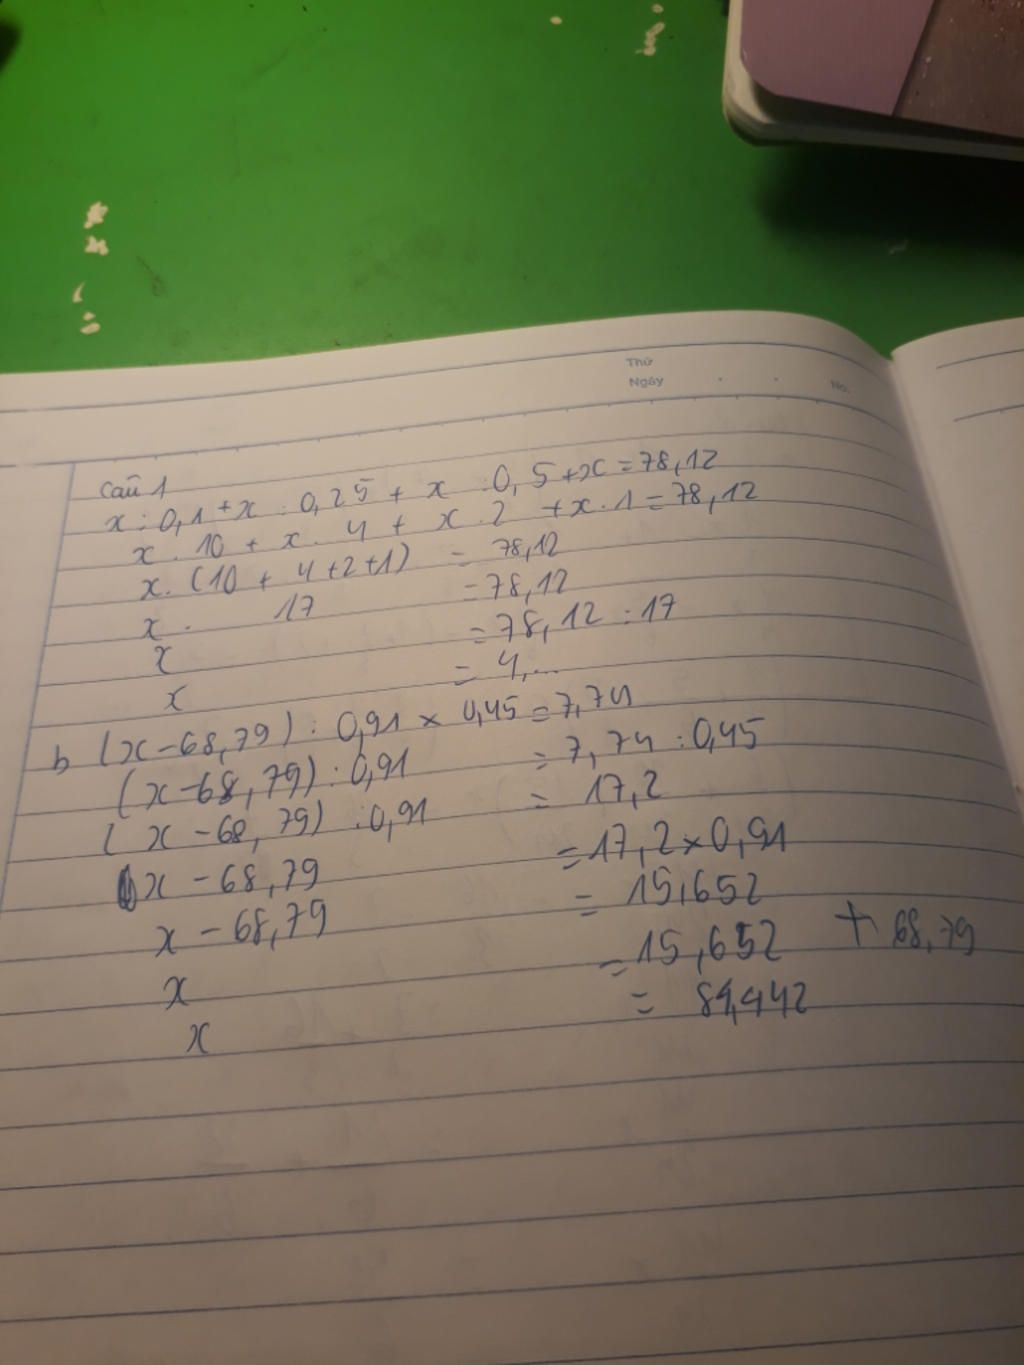 Thứ
Ngày . . No.
Câu 1
x : 0,1 + x : 0,25 + x : 0,5 + x = 78,12
x . 10 + x . 4 + x . 2 + x . 1 = 78,12
x . (10 + 4 + 2 + 1) = 78,12
x . 17 = 78,12
x = 78,12 : 17
x = 4,...
b (x - 68,79) : 0,91 × 0,45 = 7,74
(x - 68,79) : 0,91 = 7,74 : 0,45
(x - 68,79) : 0,91 = 17,2
x - 68,79 = 17,2 × 0,91
x - 68,79 = 15,652
x = 15,652 + 68,79
x = 84,442